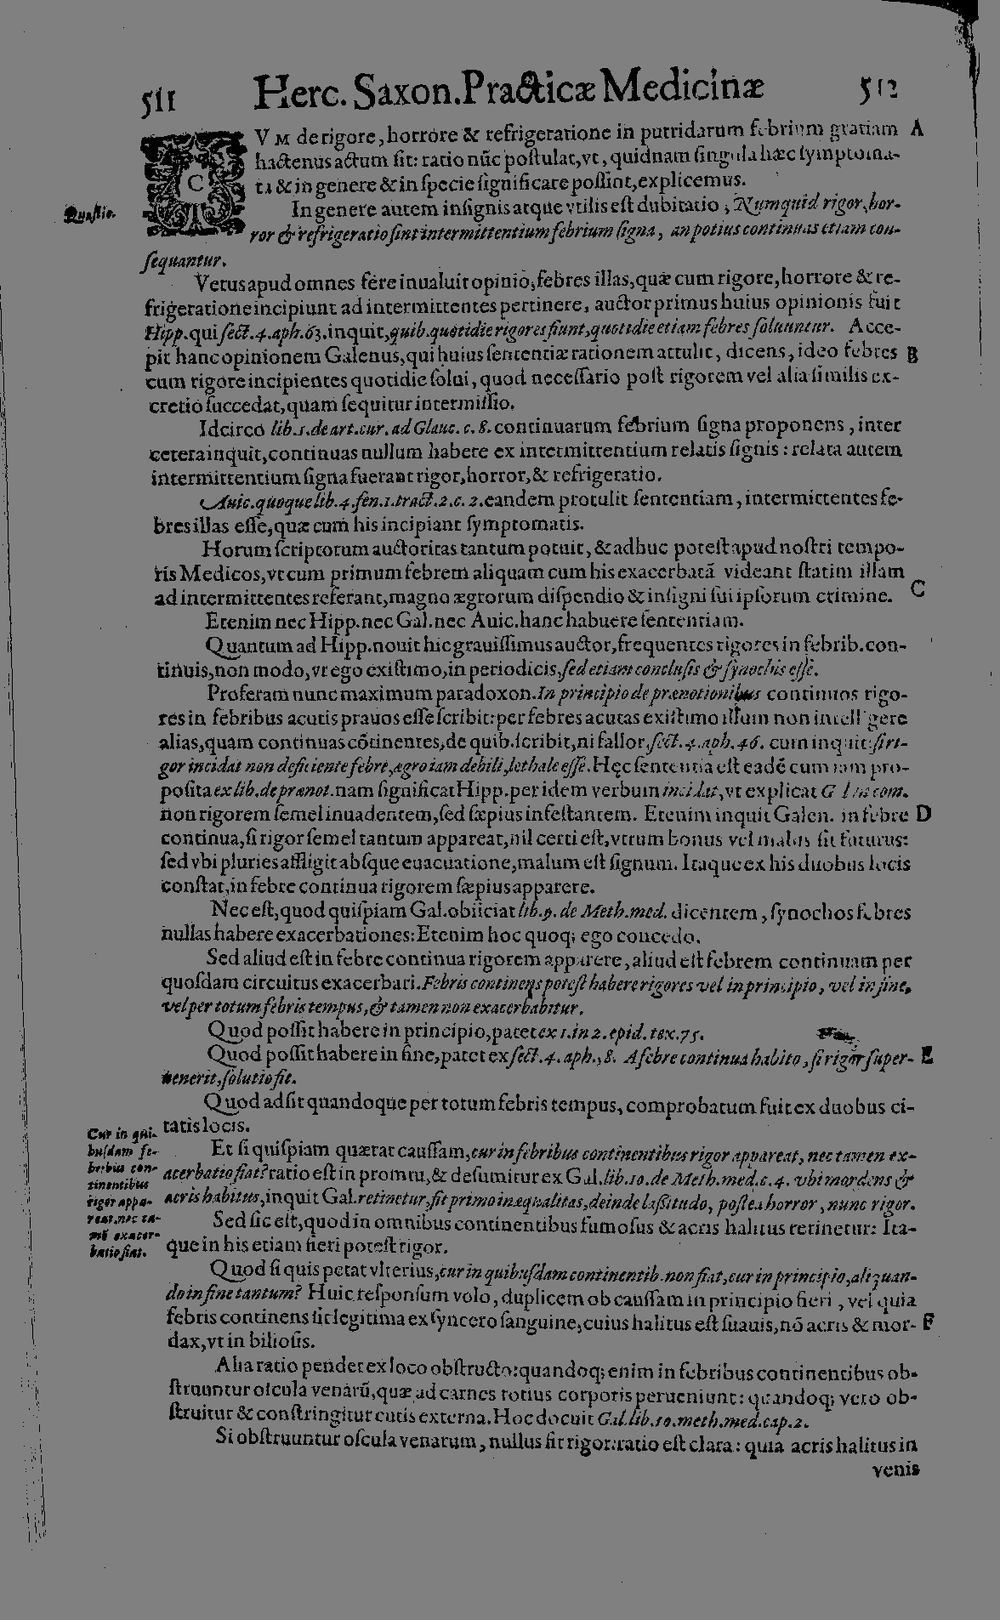 511 Herc. Saxon. Practicæ Medicinæ 512
CVM de rigore, horrore & refrigeratione in putridarum febrium gratiam A
hactenus actum sit: ratio nūc postulat, vt, quidnam singula hæc symptoma-
ta & in genere & in specie significare possint, explicemus.
Quæstio.
In genere autem insignis atque vtilis est dubitatio, Numquid rigor, hor-
ror & refrigeratio sint intermittentium febrium signa, an potius continuas etiam con-
sequantur.
Vetus apud omnes fere inualuit opinio, febres illas, quæ cum rigore, horrore & re-
frigeratione incipiunt ad intermittentes pertinere, auctor primus huius opinionis fuit
Hipp. qui sect. 4. aph. 63. inquit, quib. quotidie rigores fiunt, quotidie etiam febres soluuntur. Acce-
pit hanc opinionem Galenus, qui huius sententiæ rationem attulit, dicens, ideo febres B
cum rigore incipientes quotidie solui, quod necessario post rigorem vel alia similis ex-
cretio succedat, quam sequitur intermissio.
Idcirco lib. 1. de art. cur. ad Glauc. c. 8. continuarum febrium signa proponens, inter
cetera inquit, continuas nullum habere ex intermittentium relatis signis: relata autem
intermittentium signa fuerant rigor, horror, & refrigeratio.
Auic. quoque lib. 4. fen. 1. tract. 2. c. 2. eandem protulit sententiam, intermittentes fe-
bres illas esse, quæ cum his incipiant symptomatis.
Horum scriptorum auctoritas tantum potuit, & adhuc potest apud nostri tempo-
ris Medicos, vt cum primum febrem aliquam cum his exacerbatā videant statim illam
ad intermittentes referant, magno ægrorum dispendio & insigni sui ipsorum crimine. C
Etenim nec Hipp. nec Gal. nec Auic. hanc habuere sententiam.
Quantum ad Hipp. nouit hic grauissimus auctor, frequentes rigores in febrib. con-
tinuis, non modo, vt ego existimo, in periodicis, sed etiam conclusis & synochis esse.
Proferam nunc maximum paradoxon. In principio de prænotionibus continuos rigo-
res in febribus acutis prauos esse scribit: per febres acutas existimo illum non intelligere
alias, quam continuas cōtinentes, de quib. scribit, ni fallor, sect. 4. aph. 46. cum inquit: si ri-
gor incidat non deficiente febre, ægro iam debili, lethale esse. Hęc sententia est eadē cum iam pro-
posita ex lib. de prænot. nam significat Hipp. per idem verbum incidat, vt explicat Gal. in com.
non rigorem semel inuadentem, sed sæpius infestantem. Etenim inquit Galen. in febre D
continua, si rigor semel tantum appareat, nil certi est, vtrum bonus vel malus sit futurus:
sed vbi pluries affligit absque euacuatione, malum est signum. Itaque ex his duobus locis
constat, in febre continua rigorem sæpius apparere.
Nec est, quod quispiam Gal. obiiciat lib. 9. de Meth. med. dicentem, synochos febres
nullas habere exacerbationes: Etenim hoc quoq; ego concedo.
Sed aliud est in febre continua rigorem apparere, aliud est febrem continuam per
quosdam circuitus exacerbari. Febris continens potest habere rigores vel in principio, vel in fine,
vel per totum febris tempus, & tamen non exacerbabitur.
Quod possit habere in principio, patet ex 1. in 2. epid. tex. 75.
Quod possit habere in fine, patet ex sect. 4. aph. 58. A febre continua habito, si rigor super- E
uenerit, solutio fit.
Quod adsit quandoque per totum febris tempus, comprobatum fuit ex duobus ci-
tatis locis.
Cur in qui-
busdam fe-
bribus con-
tinentibus
rigor appa-
reat, nec ta-
mē exacer-
batio fiat.
Et si quispiam quærat caussam, cur in febribus continentibus rigor appareat, nec tamen ex-
acerbatio fiat? ratio est in promtu, & desumitur ex Gal. lib. 10. de Meth. med. c. 4. vbi mordens &
acris habitus, inquit Gal. retinetur, fit primo inæqualitas, deinde lassitudo, postea horror, nunc rigor.
Sed sic est, quod in omnibus continentibus fumosus & acris halitus retinetur: Ita-
que in his etiam fieri potest rigor.
Quod si quis petat vlterius, cur in quibusdam continentib. non fiat, cur in principio, aliquan-
do in fine tantum? Huic responsum volo, duplicem ob caussam in principio fieri, vel quia
febris continens sit legitima ex syncero sanguine, cuius halitus est suauis, nō acris & mor- F
dax, vt in biliosis.
Alia ratio pendet ex loco obstructo: quandoq; enim in febribus continentibus ob-
struuntur oscula venarū, quæ ad carnes totius corporis perueniunt: quandoq; vero ob-
struitur & constringitur cutis externa. Hoc docuit Gal. lib. 10. meth. med. cap. 2.
Si obstruuntur oscula venarum, nullus fit rigor: ratio est clara: quia acris halitus in
venis